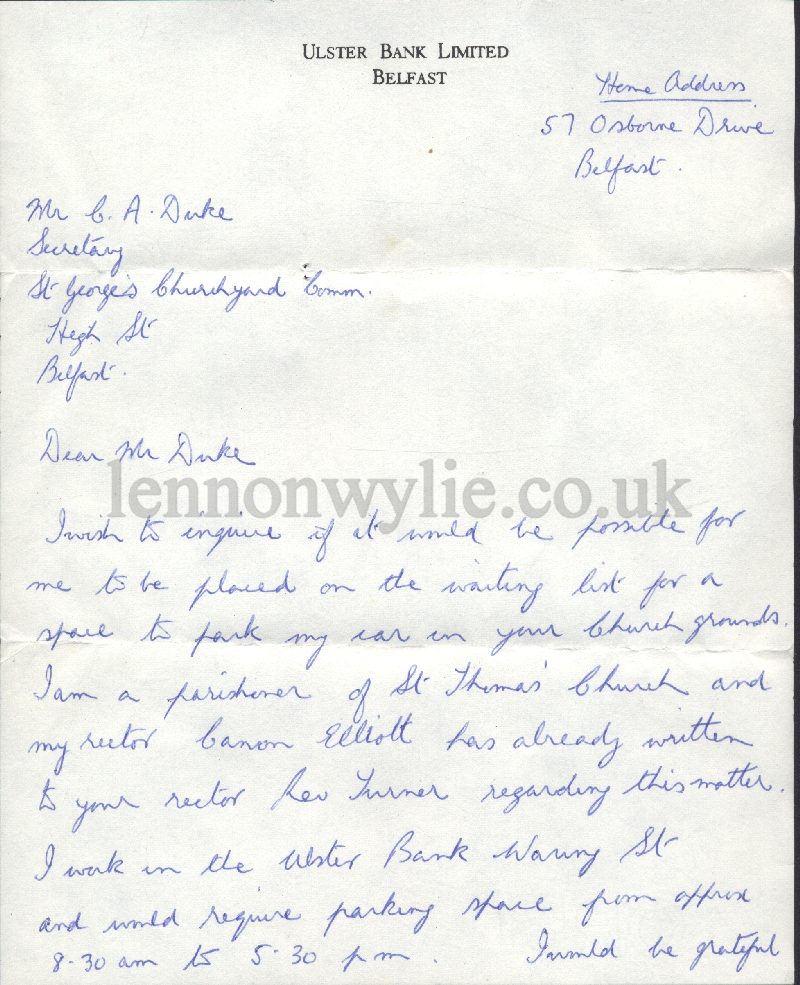 ULSTER BANK LIMITED
BELFAST
Home Address
57 Osborne Drive
Belfast.
Mr C. A. Duke
Secretary
St George's Churchyard Comm.
High St
Belfast.
Dear Mr Duke
lennonwylie.co.uk
I wish to inquire if it would be possible for
me to be placed on the waiting list for a
space to park my car in your Church grounds.
I am a parishioner of St Thomas' Church and
my rector Canon Elliott has already written
to your rector Rev Turner regarding this matter.
I work in the Ulster Bank Waring St
and would require parking space from approx
8.30 am to 5.30 pm. I would be grateful